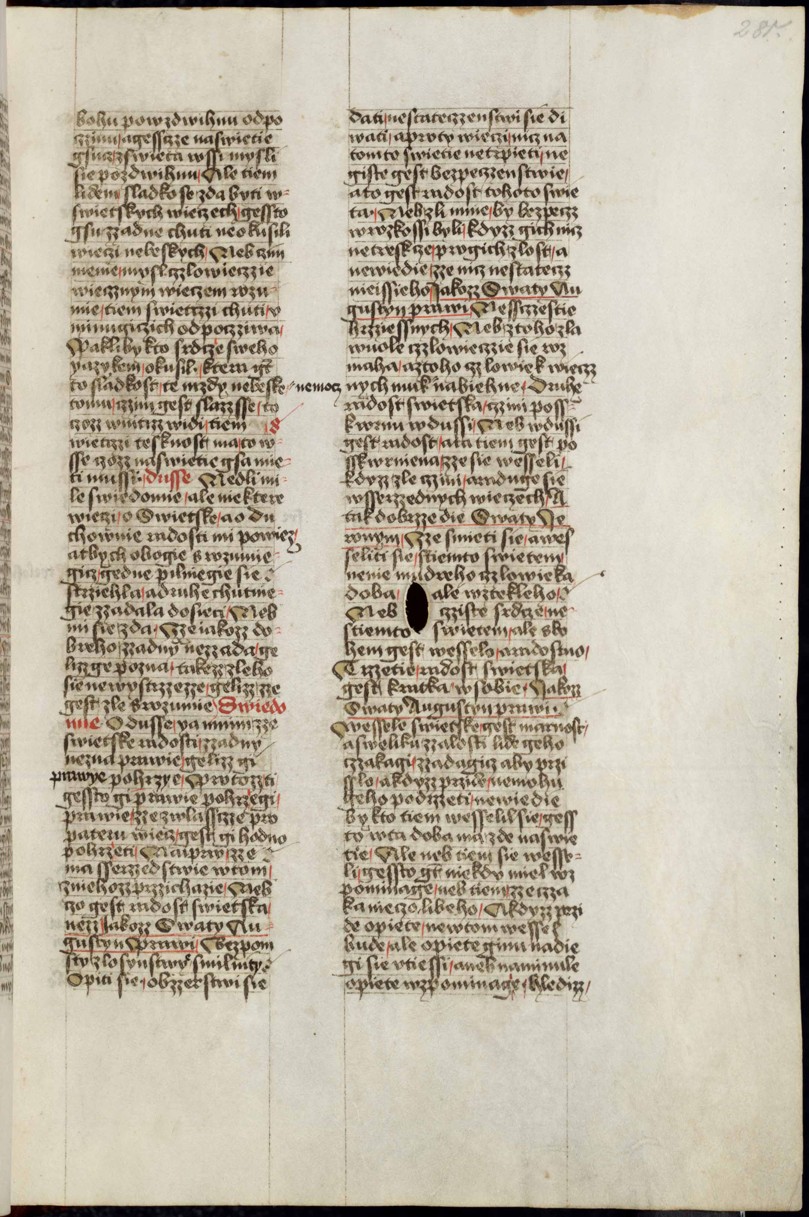 287.
bohu powzdwihnu odpo
czinu / agessczze naswietie
gsucz zswieta wssi mysli
sie pozdwihnu / Ale tiem
lidem sladko se zda byti w-
swietskych wieczech / gessto
gsu zzadne chuti neokusili
wieczi nebeskych / Neb czim
menie mysl czlowieczzie
wiecznym wieczem rozu-
mie / tiem swietczzi chuti / w
minugiczich odpocziwa /
Paklibykto srdcze sweho
yazykem / okusil / ktera gt
to sladkost / te mzdy nebeske
tomu / czim gest slazsse / to
czoz winiczz widi / tiem
wietczi teskност ma to w-
sse czozz naswietie gsa mie-
ti mussi / Dusse Nedli mi-
le swiedomie / ale niektere
wieczi / o Swietske / ao du
chownie radosti mi powiez /
atbych obogie srozumie-
gicz / gedne pilniegie sie
strziehla / adruhe chutne-
gie zzadala dosieci / Neb
mi sie zda / Zze iakozz do-
breho / zzadny nezzada / ge
lizz ge pozna / takezz zleho
sie newystrzzezze / gelizz zze
gest zle srozumie Swiedo
mie O dusse / ya mnim zze
swietske radosti / zzadny
nezna prawie / gelizz gi
prawye pohrzye / Protozzti
gessto gi prawie pohrzegi /
prawie / zze zwlasscze pro
pateru wiecz / gest gi hodno
pohrzeti / Naiprw / zze
ma sserzedstwie wtom /
zniehozz przichazie / Neb
czo gest radost swietska
nezz Jakozz Swaty Au-
gustyn Prawi / Bezpom
sty zlosynstwie smilnity /
Opiti sie / obzzerstwi sie
nemocz
dati / nestateczzenstwi sie di
wati / aproty wieczi / nicz na
tomto swietie netrpieti / ne
giste gest bezpeczzenstwie /
ato gest radost tohoto swie
ta / Nebzli mnie / by bezpeczz
wrozkossi byli / kdyzz gich nicz
netreskcze / prwgich zlost / a
newiedie / zze nicz nestateczz
nieissieho / Jakozz Swaty Au
gustyn prawi / Nessczzestie
hrziessnych / Neb ztoho zla
wuole czlowieczzie sie roz
maha / aztoho czlowiek wieczz
nych muk nabiehne / Druhe
radost swietska / czini poss-
kwrnu wdussi / Neb wdussi
gest radost / ata tiem gest po
sskwrniena / zze sie wesseli /
kdyzz zle czini / araduge sie
wsserzzednych wieczech / A
tak dobrzze die Swaty Je
ronym / Zze smieti sie / awes
seliti sie / stiemto swietem /
nenie mudreho czlowieka
doba / ale wztekleho /
Neb czziste srdcze / ne-
stiemto swietem / ale sbo
hem gest wesselo / aradostno /
Trzzetie / radost swietska /
gest kratka wsobie / Jakozz
Swaty Augustyn prawi
Wessele swietske / gest marnost /
aswelikuzzalosti lide geho
czzakagi / zzadagicz aby przi
sslo / akdyzz przide / nemohu
geho podrzzeti / newiedie
bykto tiem wesselil sie / gess
to wta doba ma / zde naswie
tie / Ale neb tiem sie wesse-
li / gessto gt niekdy miel wz
pominage / neb tiem zzeczza
ka nieczo libeho / Akdyzz przi
de opiete / newtom wessel
bude / ale opiete ginu nadie
gi sie vtiessi / aneb naminule
opiete wzpominage / hledizz /